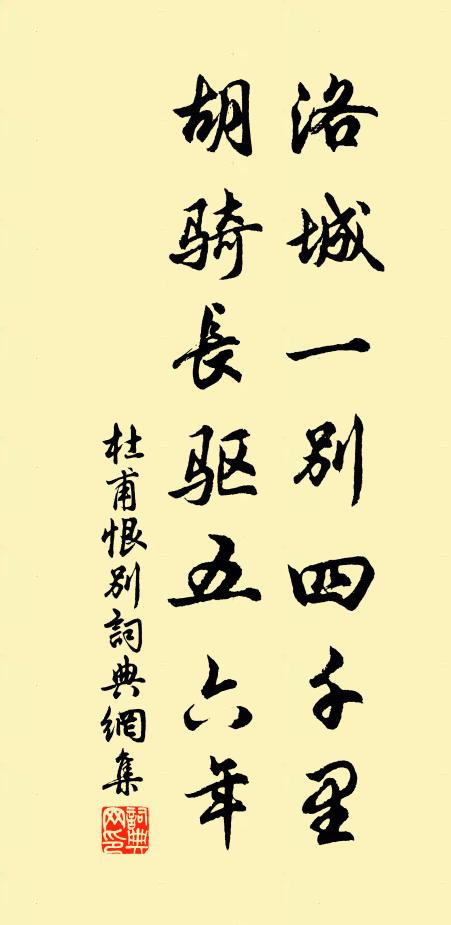 洛城一别四千里
胡骑長驱五六年
杜甫恨别詞典網集
詞典网印